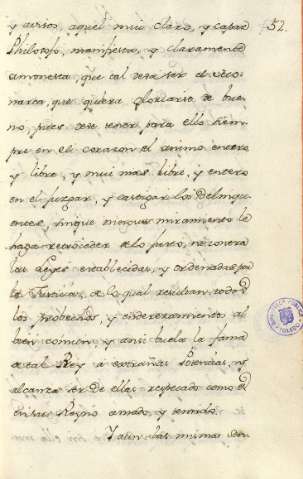 52.
y avisos, aquel mui claro, y capaz
Philosofo, manifiesta, y claramente
amonesta, que tal deva ser el Mo-
narca, que quiera gloriarse de bue-
no, pues deve tener para ello siem-
pre en el corazon el animo entero
y libre, y mui mas libre, y entero
en el juzgar, y castigar los delinqu-
entes, sinque ningun miramiento le
haga retroceder de lo justo, ni contra
las Leyes establecidas, y ordenadas por
la Justicia; de lo qual resultan todos
los probechos, y enderezamiento al
bien comun, y ansi buela la fama
de tal Rey á extrañas Potencias, no
alcanza ser de ellas respetado como de
en su Reyno amado, y temido.
Y aun las mismas
TOLEDO